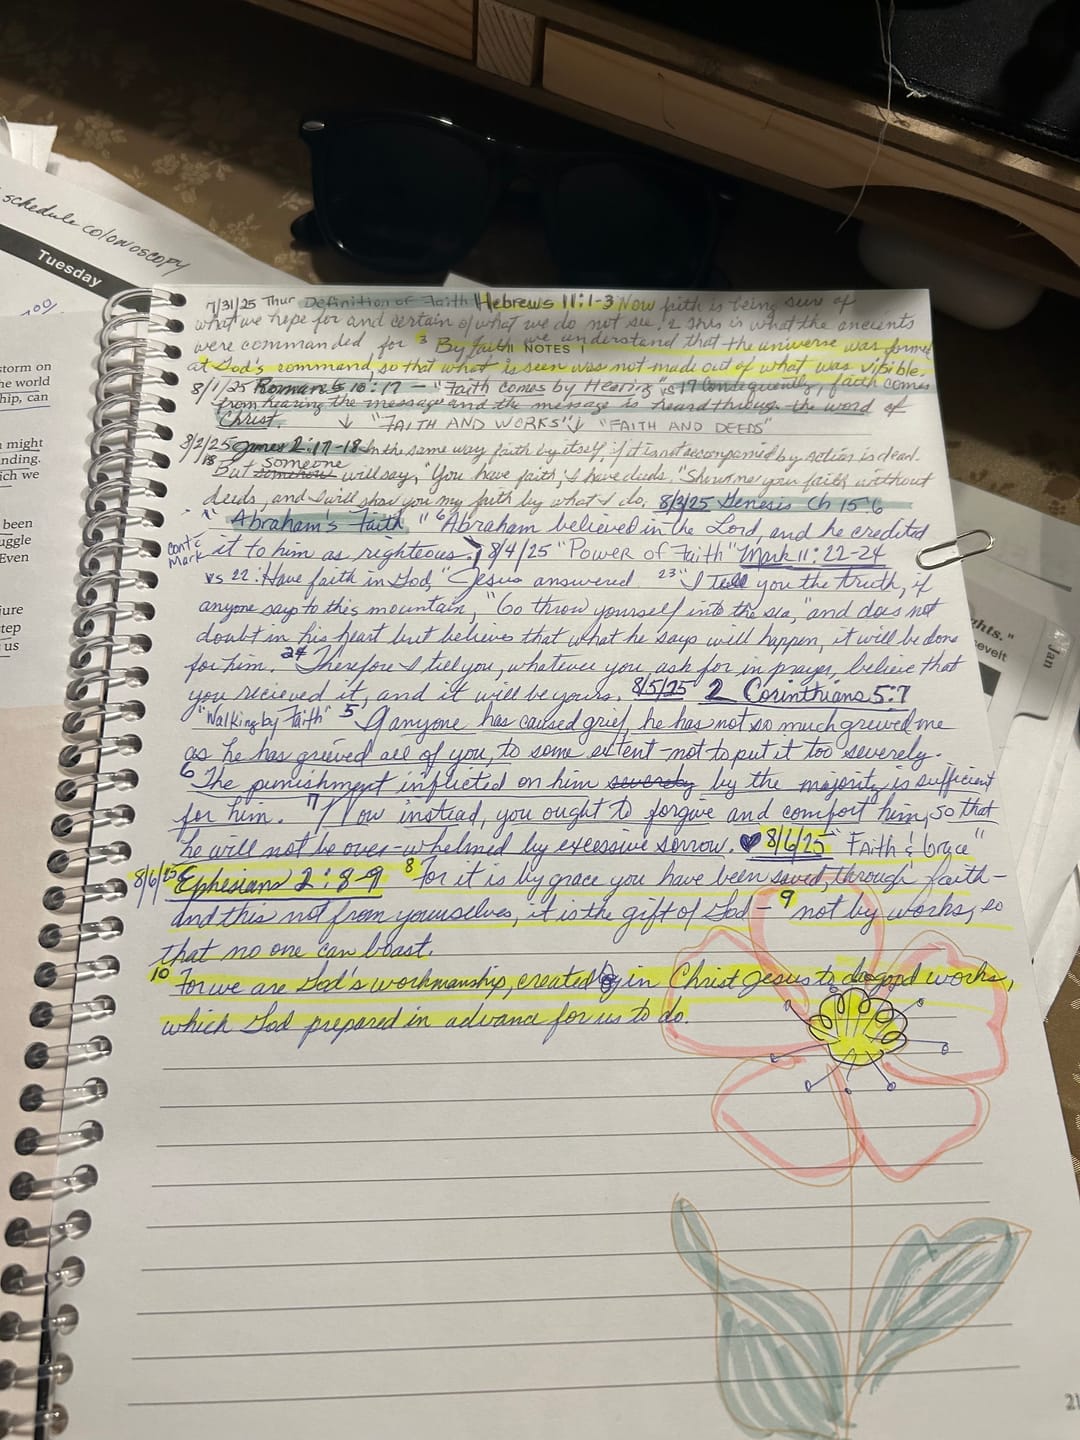 schedule colonoscopy
Tuesday
storm on
he world
hip, can
might
nding.
ich we
been
uggle
Even
ure
tep
us
7/31/25 Thur Definition of Faith Hebrews 11:1-3 Now faith is being sure of
what we hope for and certain of what we do not see. 2 This is what the ancients
were commanded for 3 By faith we understand that the universe was formed
NOTES
at God's command, so that what is seen was not made out of what was visible.
8/1/25 Romans 10:17 - "Faith comes by Hearing" vs 17 Consequently, faith comes
from hearing the message and the message is heard through the word of
Christ. ↓ "FAITH AND WORKS" ↓ "FAITH AND DEEDS"
8/2/25 James 2:17-18 In the same way faith by itself if it is not accompanied by action is dead.
18 But somehow someone will say, "You have faith, I have deeds. "Show me your faith without
deeds, and I will show you my faith by what I do. 8/3/25 Genesis Ch 15:6
"Abraham's Faith" "6 Abraham believed in the Lord, and he credited
it to him as righteous. 8/4/25 "Power of Faith" Mark 11:22-24
cont:
Mark
vs 22: Have faith in God," Jesus answered 23 "I tell you the truth, if
anyone says to this mountain, "Go throw yourself into the sea," and does not
doubt in his heart but believes that what he says will happen, it will be done
for him. 24 Therefore I tell you, whatever you ask for in prayer, believe that
you recieved it, and it will be yours. 8/5/25 2 Corinthians 5:7
"Walking by Faith" 5 If anyone has caused grief, he has not so much grieved me
as he has grieved all of you, to some extent-not to put it too severely.
6 The punishment inflicted on him severely by the majority is sufficient
for him. 7 Now instead, you ought to forgive and comfort him, so that
he will not be over-whelmed by excessive sorrow. ♥ 8/6/25 "Faith & Grace"
8/6/25 Ephesians 2:8-9 8 For it is by grace you have been saved, through faith-
and this not from yourselves, it is the gift of God - 9 not by works, so
that no one can boast.
10 For we are God's workmanship, created in Christ Jesus to do good works,
which God prepared in advance for us to do.
ghts."
evelt
Jan
21